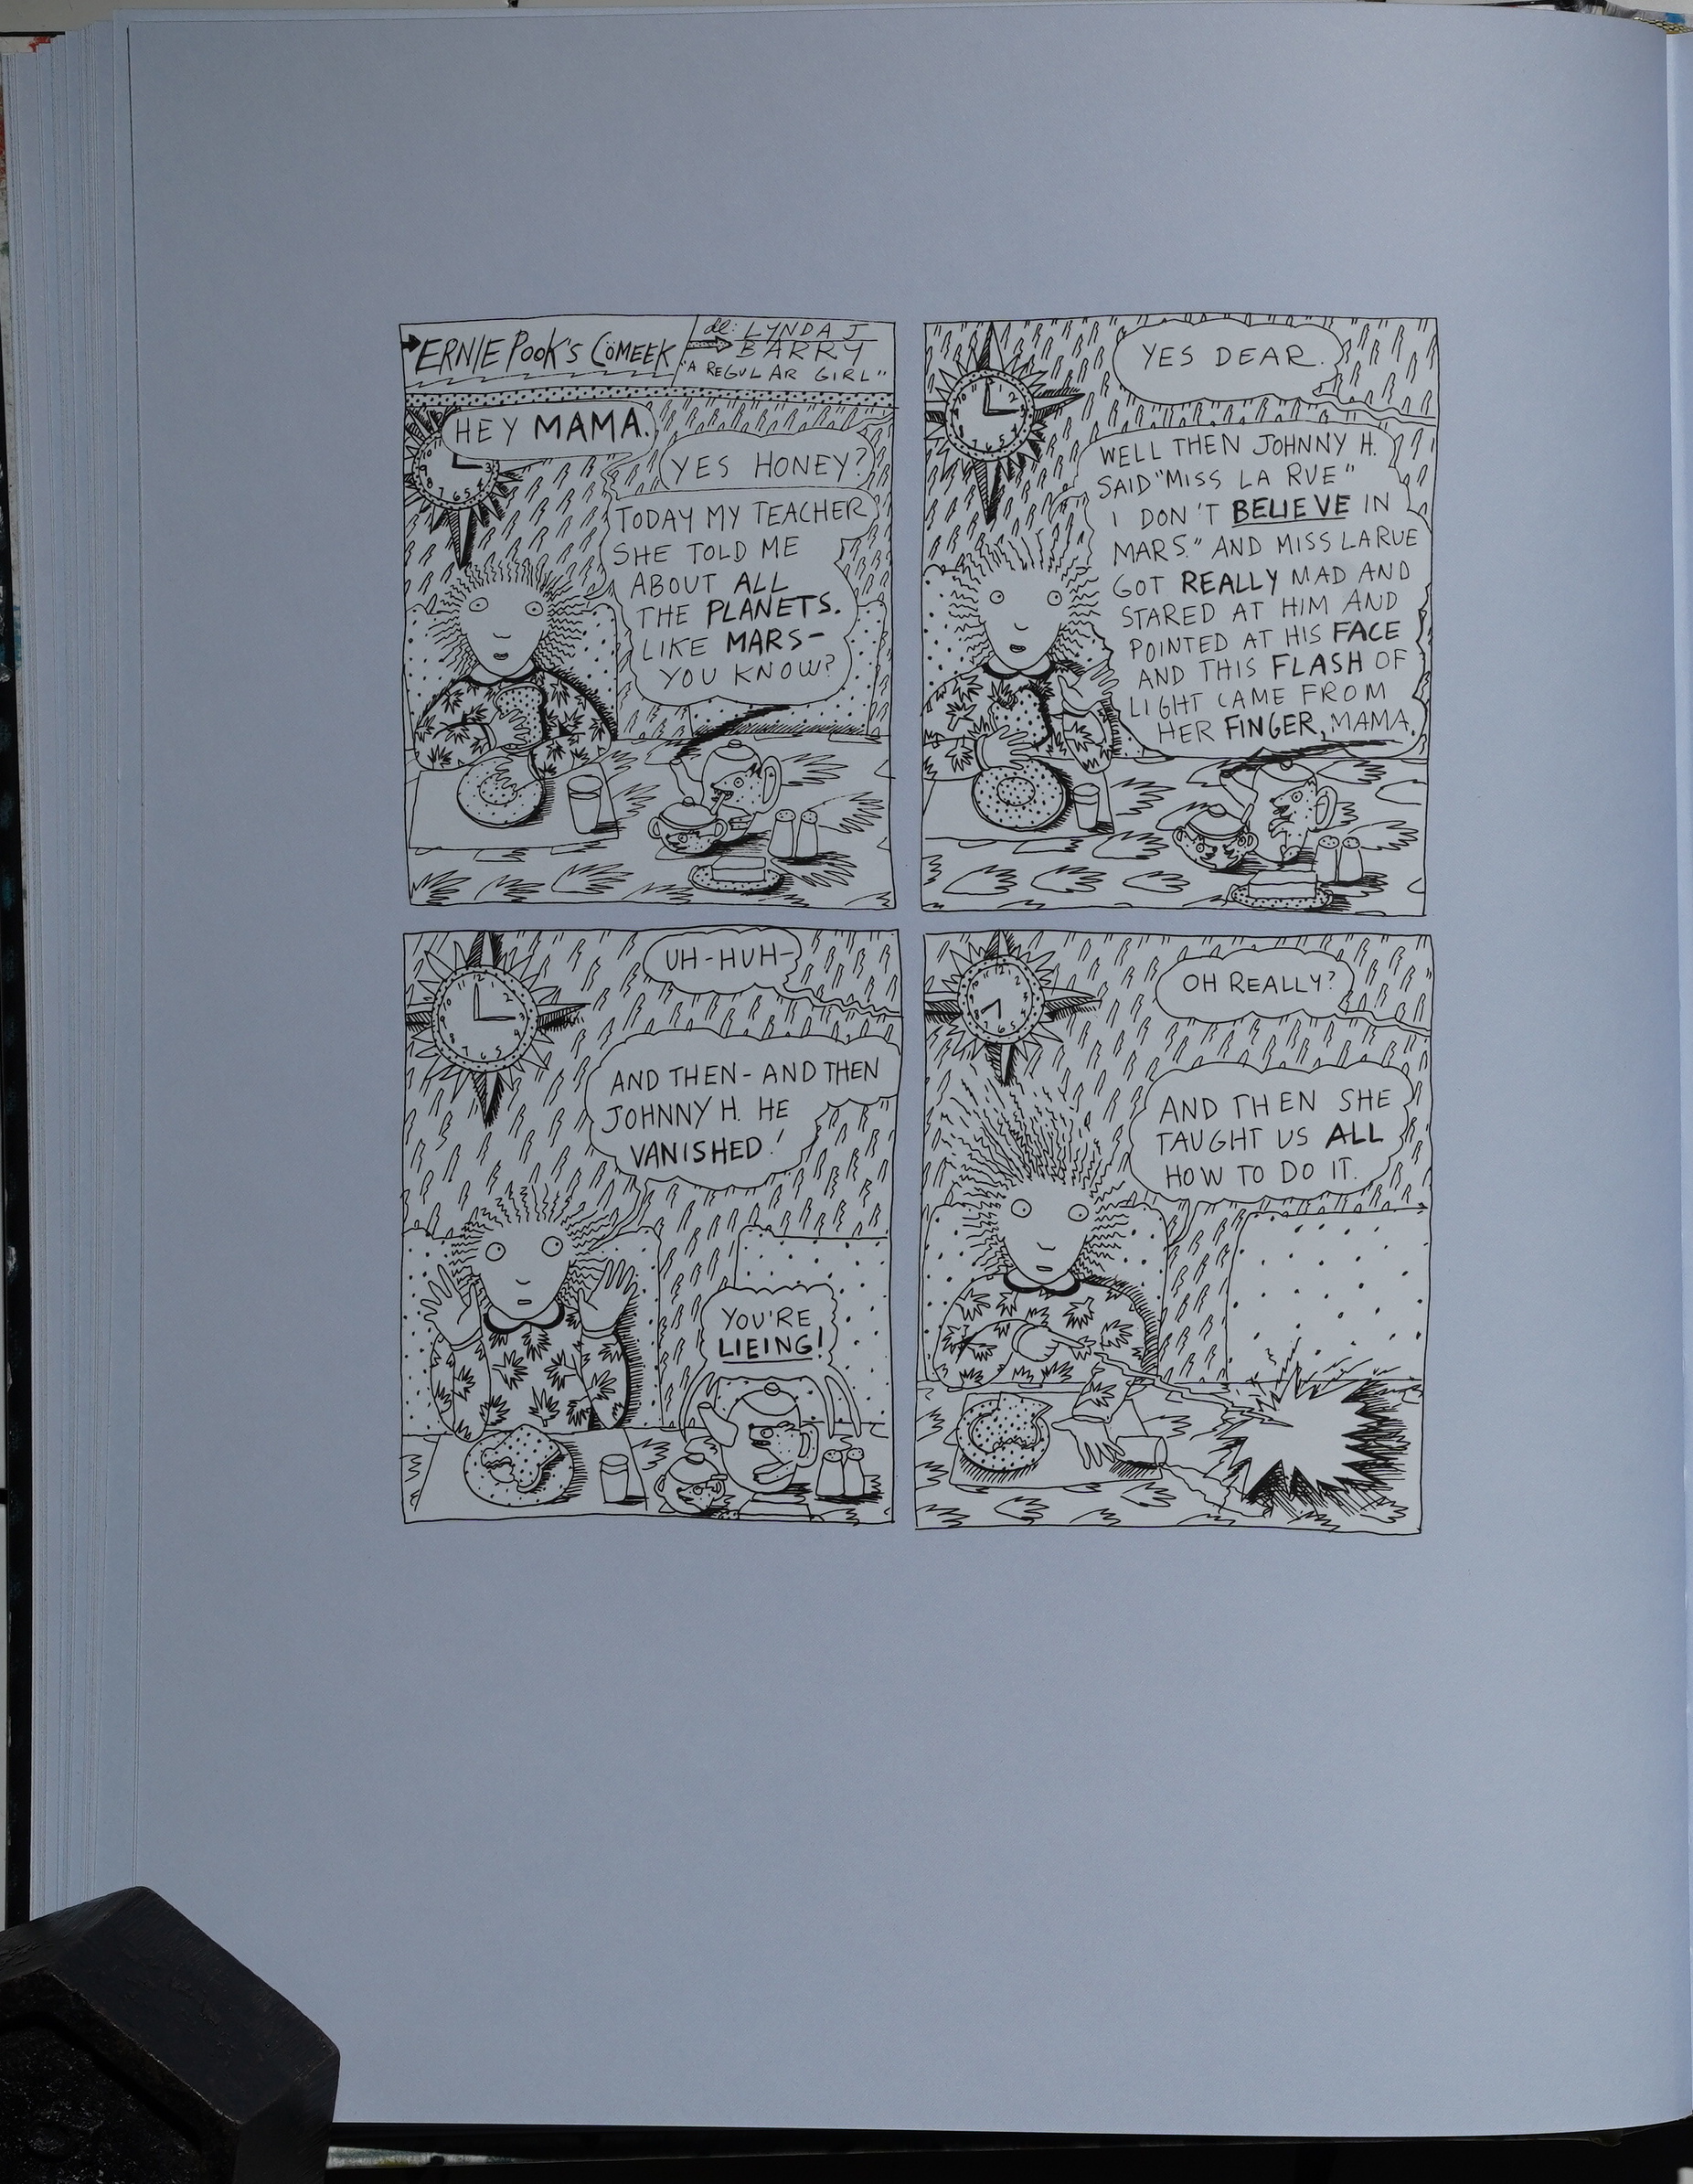 ERNIE POOK'S COMEEK
de: LYNDA J
BARRY
"A REGULAR GIRL"
HEY MAMA.
YES HONEY?
TODAY MY TEACHER
SHE TOLD ME
ABOUT ALL
THE PLANETS.
LIKE MARS-
YOU KNOW?
YES DEAR.
WELL THEN JOHNNY H.
SAID "MISS LA RUE"
I DON'T BELIEVE IN
MARS." AND MISS LA RUE
GOT REALLY MAD AND
STARED AT HIM AND
POINTED AT HIS FACE
AND THIS FLASH OF
LIGHT CAME FROM
HER FINGER, MAMA.
UH-HUH-
AND THEN- AND THEN
JOHNNY H. HE
VANISHED!
YOU'RE
LIEING!
OH REALLY?
AND THEN SHE
TAUGHT US ALL
HOW TO DO IT.